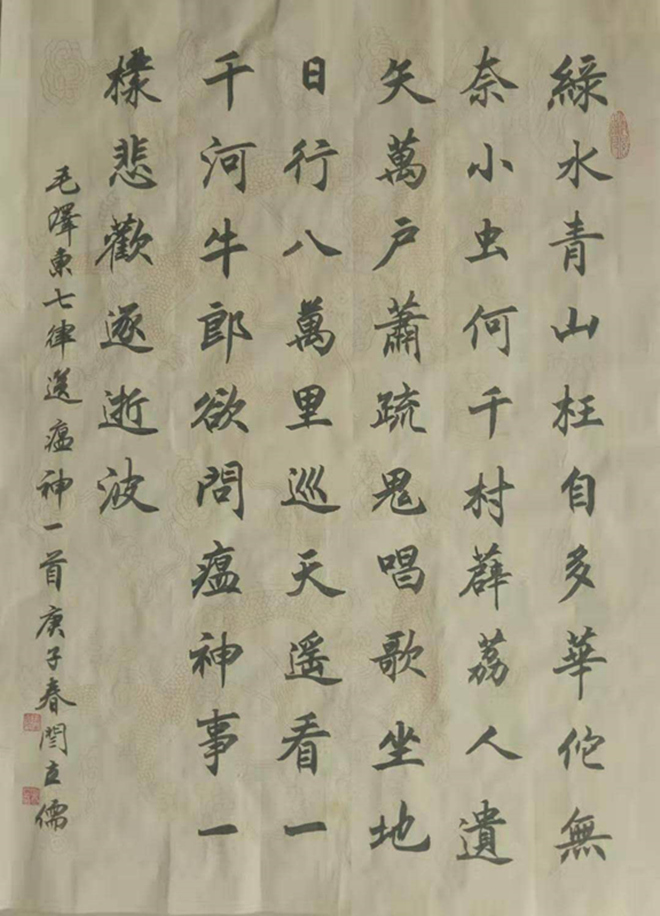 綠水青山枉自多華佗無
奈小虫何千村薜荔人遺
矢萬戶蕭疏鬼唱歌坐地
日行八萬里巡天遥看一
千河牛郎欲問瘟神事一
樣悲歡逐逝波
毛澤東七律送瘟神一首庚子春閆立儒